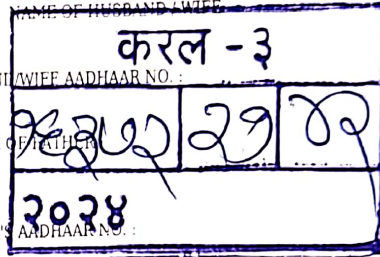 NAME OF HUSBAND / WIFE
करल - ३
/WIFE AADHAAR NO. :
४२
OF FATHER
२०२४
AADHAAR NO. :